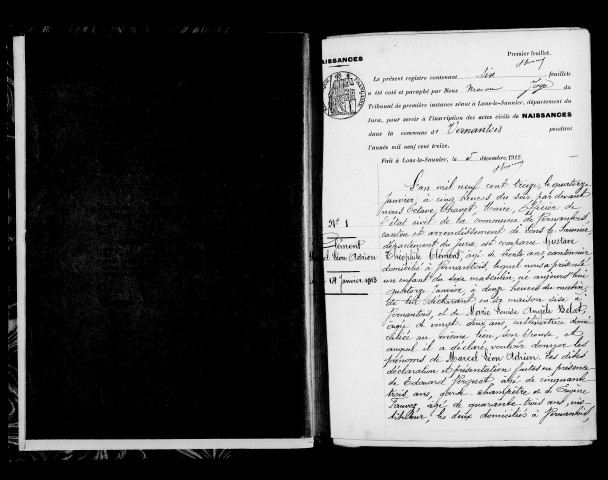 NAISSANCES
Premier feuillet.
Le présent registre contenant six feuillets
a été coté et paraphé par Nous Juge du
Tribunal de première instance séant à Lons-le-Saunier, département du
Jura, pour servir à l'inscription des actes civils de NAISSANCES
dans la commune de Vernantois pendant
l'année mil neuf cent treize.
Fait à Lons-le-Saunier, le 5 décembre 1912.
N° 1
Clément
Marcel Léon Adrien
14 Janvier 1913
L'an mil neuf cent treize, le quatorze
janvier, à cinq heures du soir, par devant
nous Octave Chauvet, Maire, Officier de
l'état civil de la commune de Vernantois,
canton et arrondissement de Lons le Saunier,
département du Jura est comparu Gustave
Théophile Clément, âgé de trente ans, cantonnier
domicilié à Vernantois, lequel nous a présenté
un enfant du sexe masculin, né aujourd'hui
quatorze Janvier, à douze heures du matin,
de lui déclarant en sa maison sise à
Vernantois, et de Marie Louise Angèle Belot,
âgée de vingt deux ans, cultivatrice domi
ciliée au même lieu, son épouse, et
auquel il a déclaré vouloir donner les
prénoms de Marcel Léon Adrien. Les dites
déclaration et présentation faites en présence
de Edouard âgé de cinquante
trois ans, garde champêtre et de Eugène
âgé de quarante-trois ans, ins
tituteur, les deux domiciliés à Vernantois,